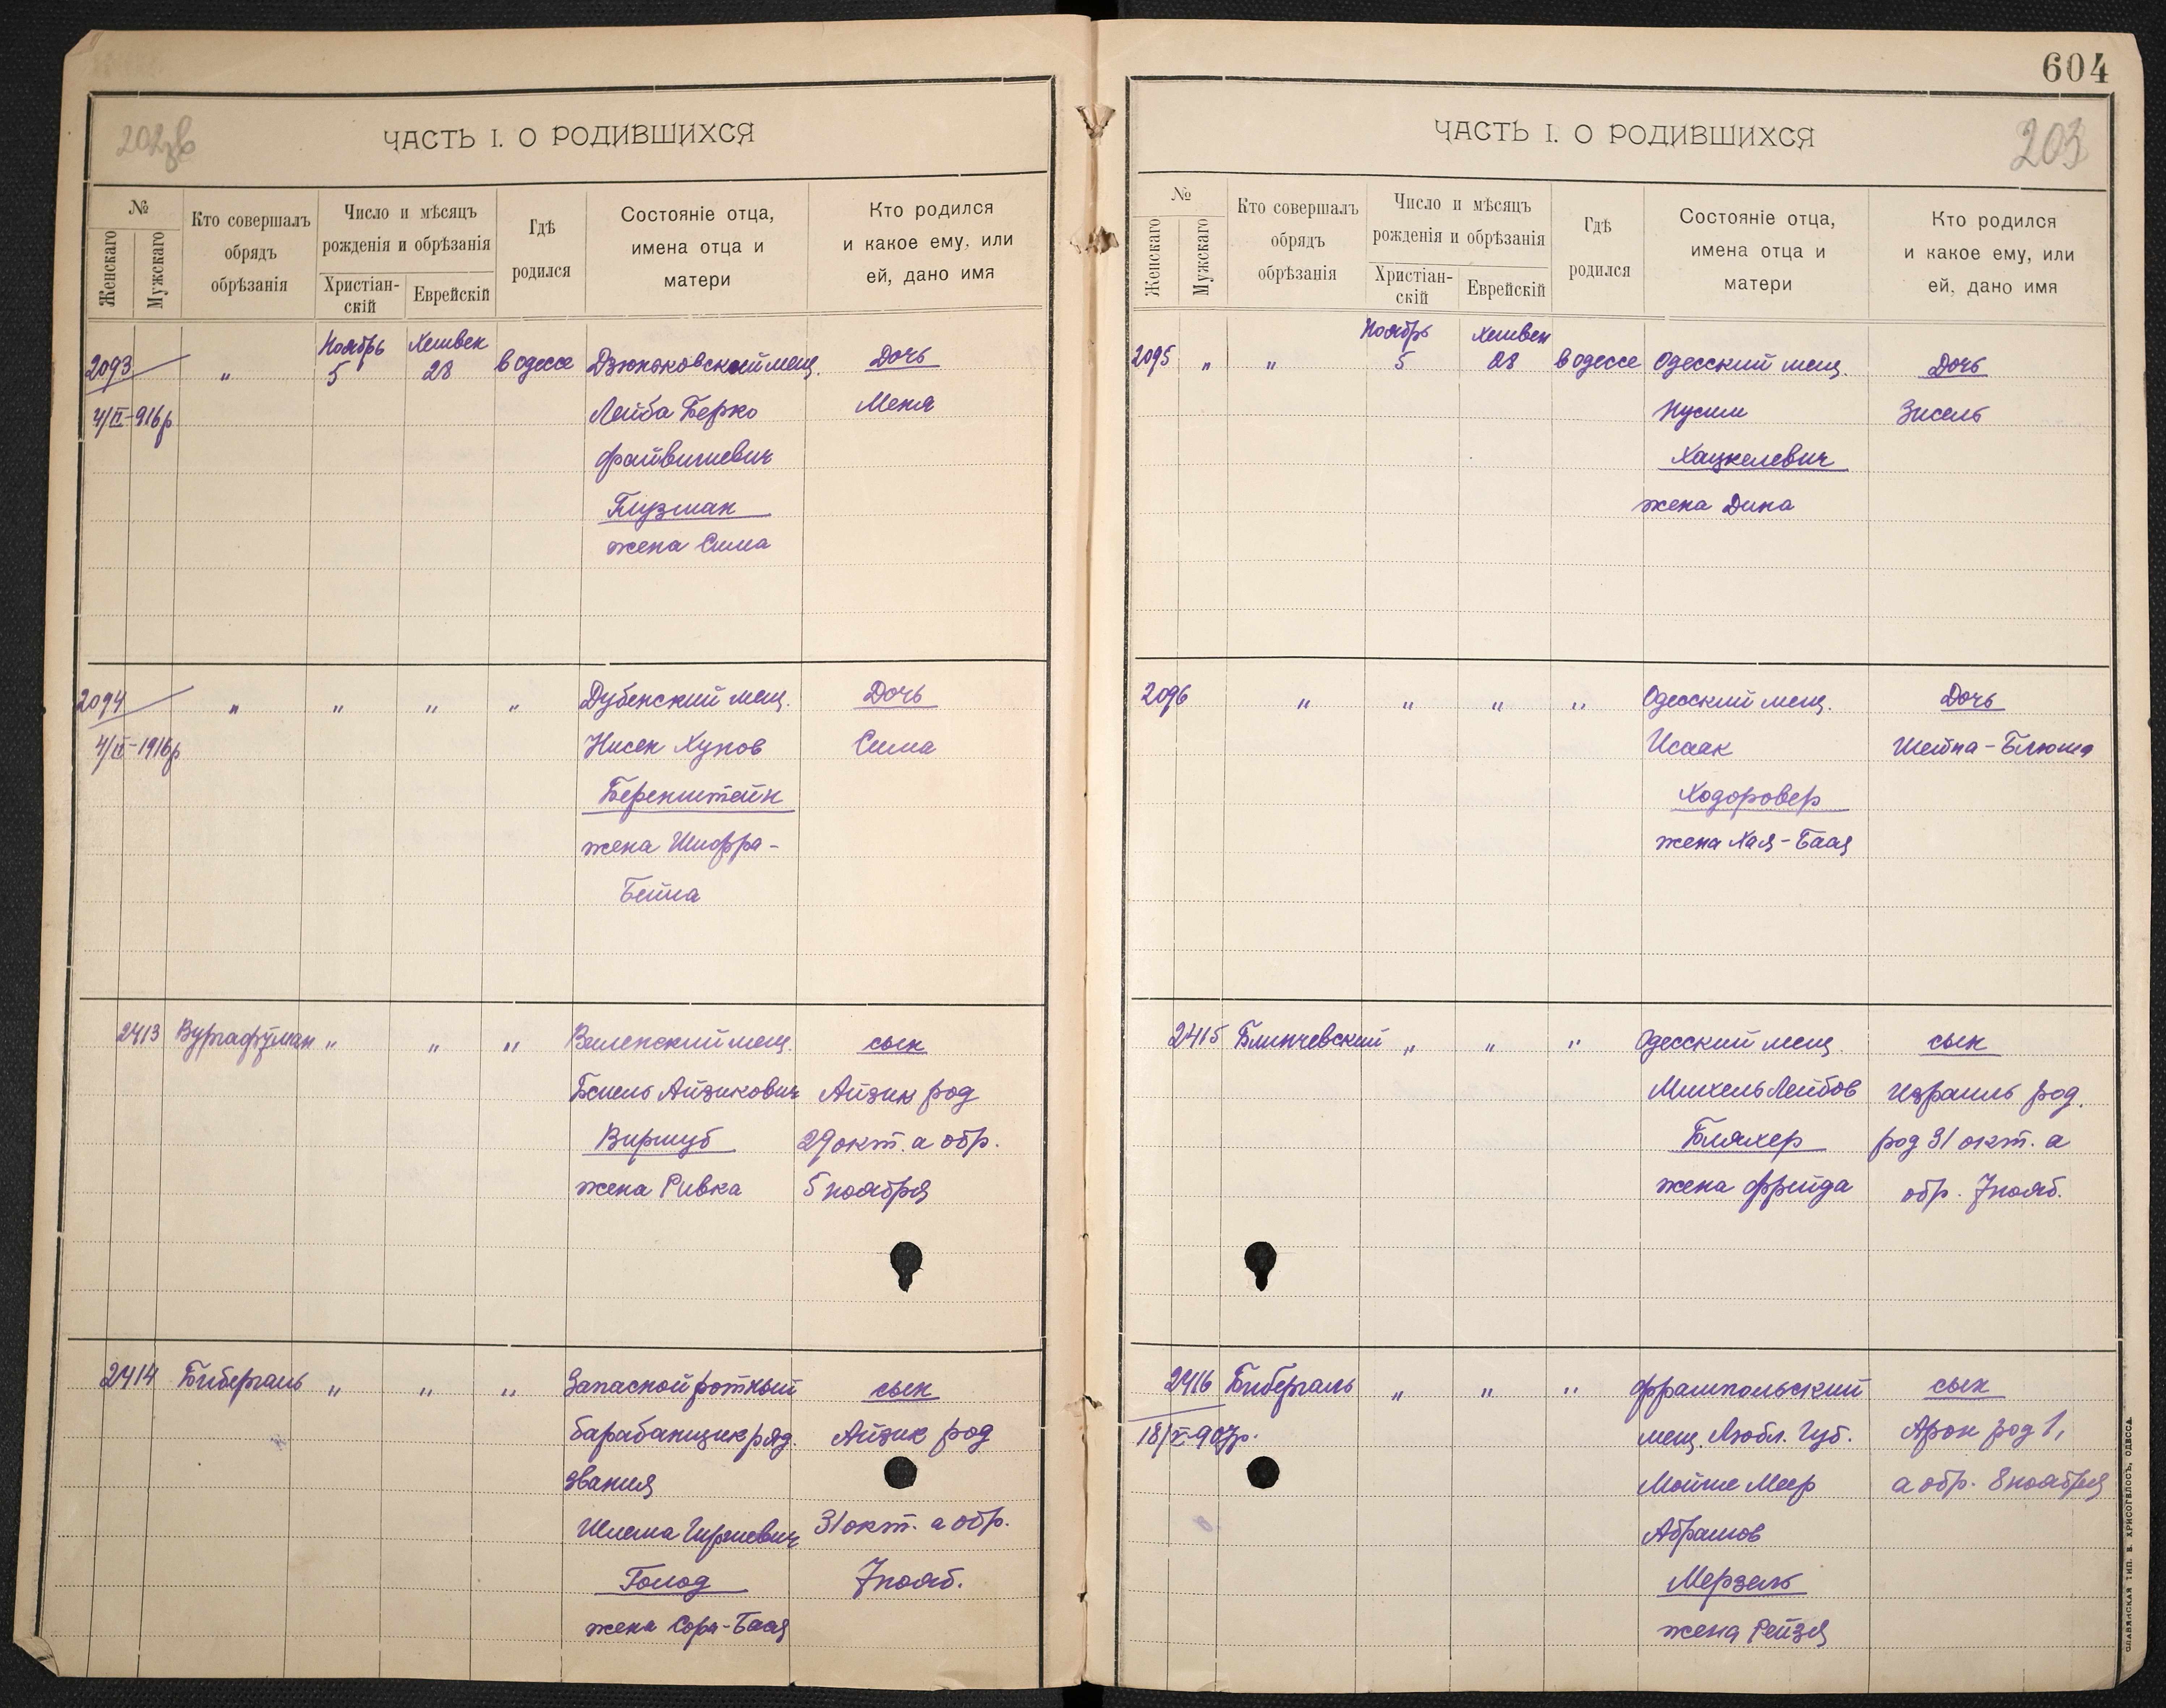 202об
ЧАСТЬ I. О РОДИВШИХСЯ
№
Женскаго
Мужскаго
Кто совершалъ обрядъ обрѣзанія
Число и мѣсяцъ рожденія и обрѣзанія
Христіан-скій
Еврейскій
Гдѣ родился
Состояніе отца, имена отца и матери
Кто родился и какое ему, или ей, дано имя
Ноябрь Хешвен
2093 " 5 28 в одессе Дзюнковский мещ. Дочь
4/II-916р Лейба Берко Меня
Файвишевич
Глузман
жена Сима
2094 " " " " Дубенский мещ. Дочь
4/II-1916р Нисен Хунов Сима
Беренштейн
жена Шифра-
Бейла
2413 " " " Виленский мещ. сын
Айзикович Айзик род
Виршуб 29 окт. а обр.
жена Ривка 5 ноября
2414 Бибергаль " " " Запасной ротный сын
барабанщик ряд. Айзик род
звания
Шлема Гиршевич 31 окт. а обр.
Голод 7 нояб.
жена Сора-Бася
604
203
ЧАСТЬ I. О РОДИВШИХСЯ
№
Женскаго
Мужскаго
Кто совершалъ обрядъ обрѣзанія
Число и мѣсяцъ рожденія и обрѣзанія
Христіан-скій
Еврейскій
Гдѣ родился
Состояніе отца, имена отца и матери
Кто родился и какое ему, или ей, дано имя
Ноябрь Хешвен
2095 " " 5 28 в одессе Одесский мещ. Дочь
Нусим Зисель
Хацкелевич
жена Дина
2096 " " " " Одесский мещ. Дочь
Исаак Шейна-Блюма
Ходоровер
жена Хая-Бася
2415 Блинчевский " " " Одесский мещ. сын
Михель Лейбов Израиль род.
Бляхер род 31 окт. а
жена Фрейда обр. 7 нояб.
2416 Бибергаль " " " Фрампольский сын
18/X-907р. мещ. Любл. Губ. Арон род 1,
Мойше Меер а обр. 8 ноября
Абрамов
Мерзель
жена Рейзя
СЛАВЯНСКАЯ ТИП. Е. ХРИСОГЕЛОСЪ, ОДЕССА.